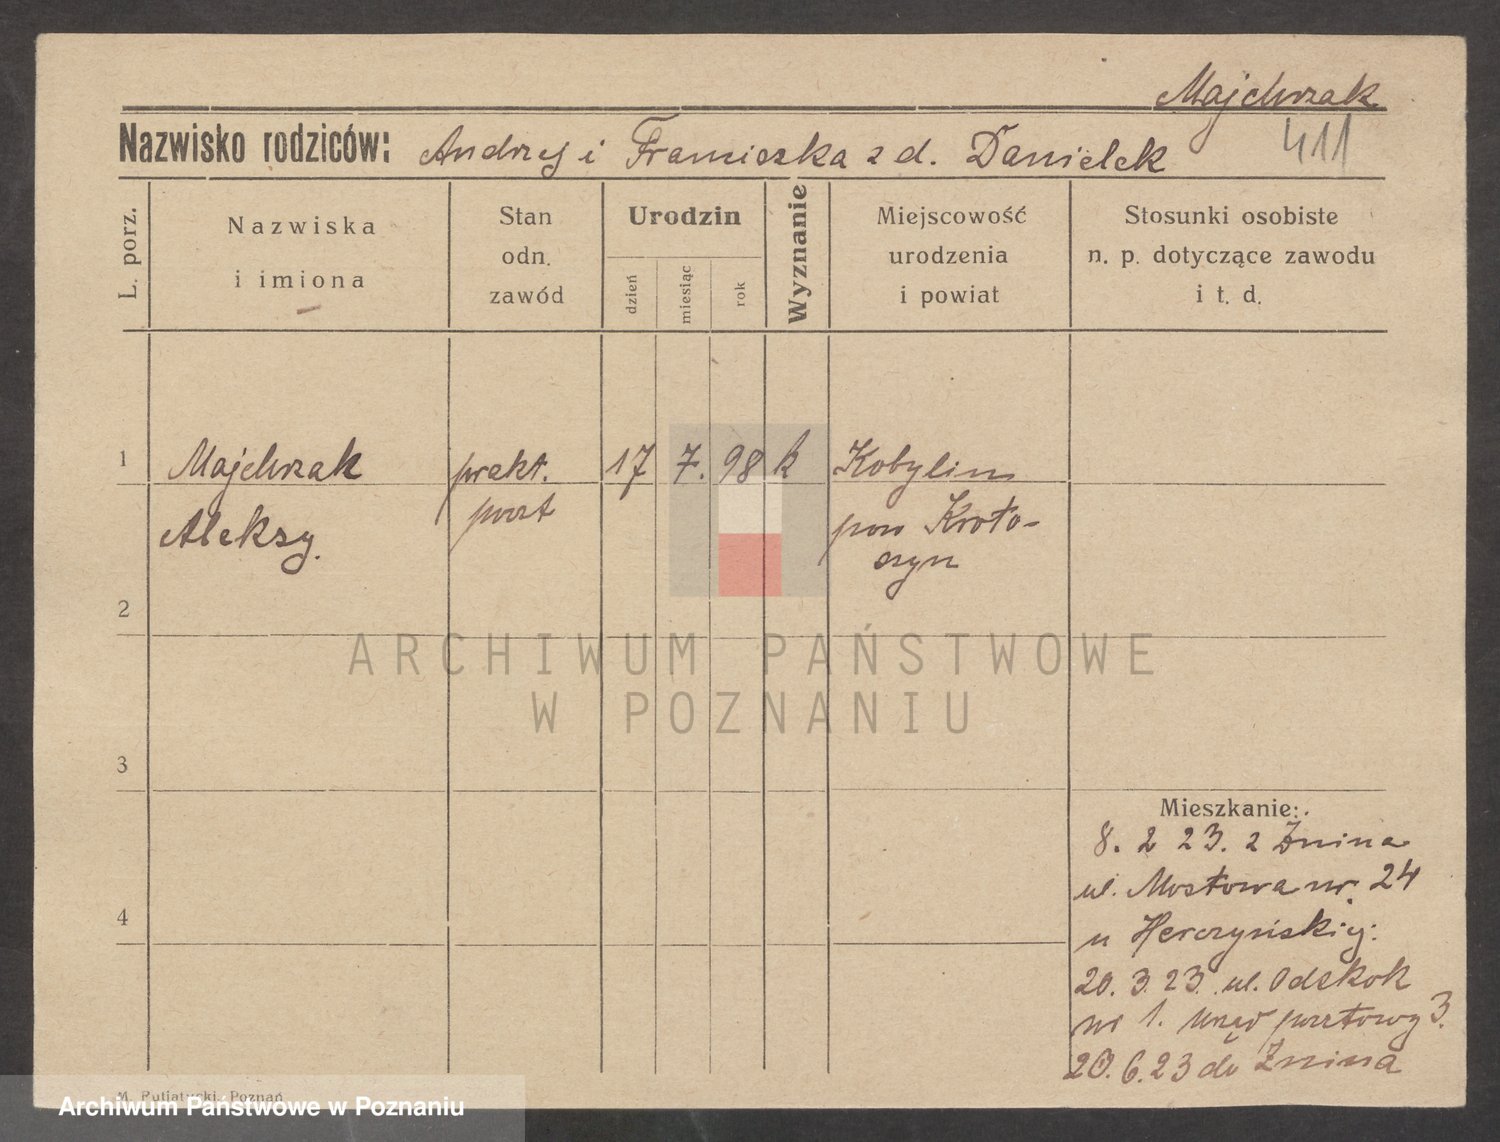 Majchrzak
411
Nazwisko rodziców: Andrzej i Franciszka z d. Danielek
L. porz.
Nazwiska
i imiona
Stan
odn.
zawód
Urodzin
dzień
miesiąc
rok
Wyznanie
Miejscowość
urodzenia
i powiat
Stosunki osobiste
n. p. dotyczące zawodu
i t. d.
1 Majchrzak prakt. 17 7. 98 k Kobylin
Aleksy. poczt pow Kroto-
szyn
2
3
4
ARCHIWUM PAŃSTWOWE
W POZNANIU
Mieszkanie:
8. 2 23. z Żnina
ul. Mostowa nr. 24
u Herczyńskiej:
20. 3. 23. ul. Odskok
nr 1. Urząd pocztowy 3.
20. 6. 23 do Żnina
M. Putiatycki, Poznań
Archiwum Państwowe w Poznaniu